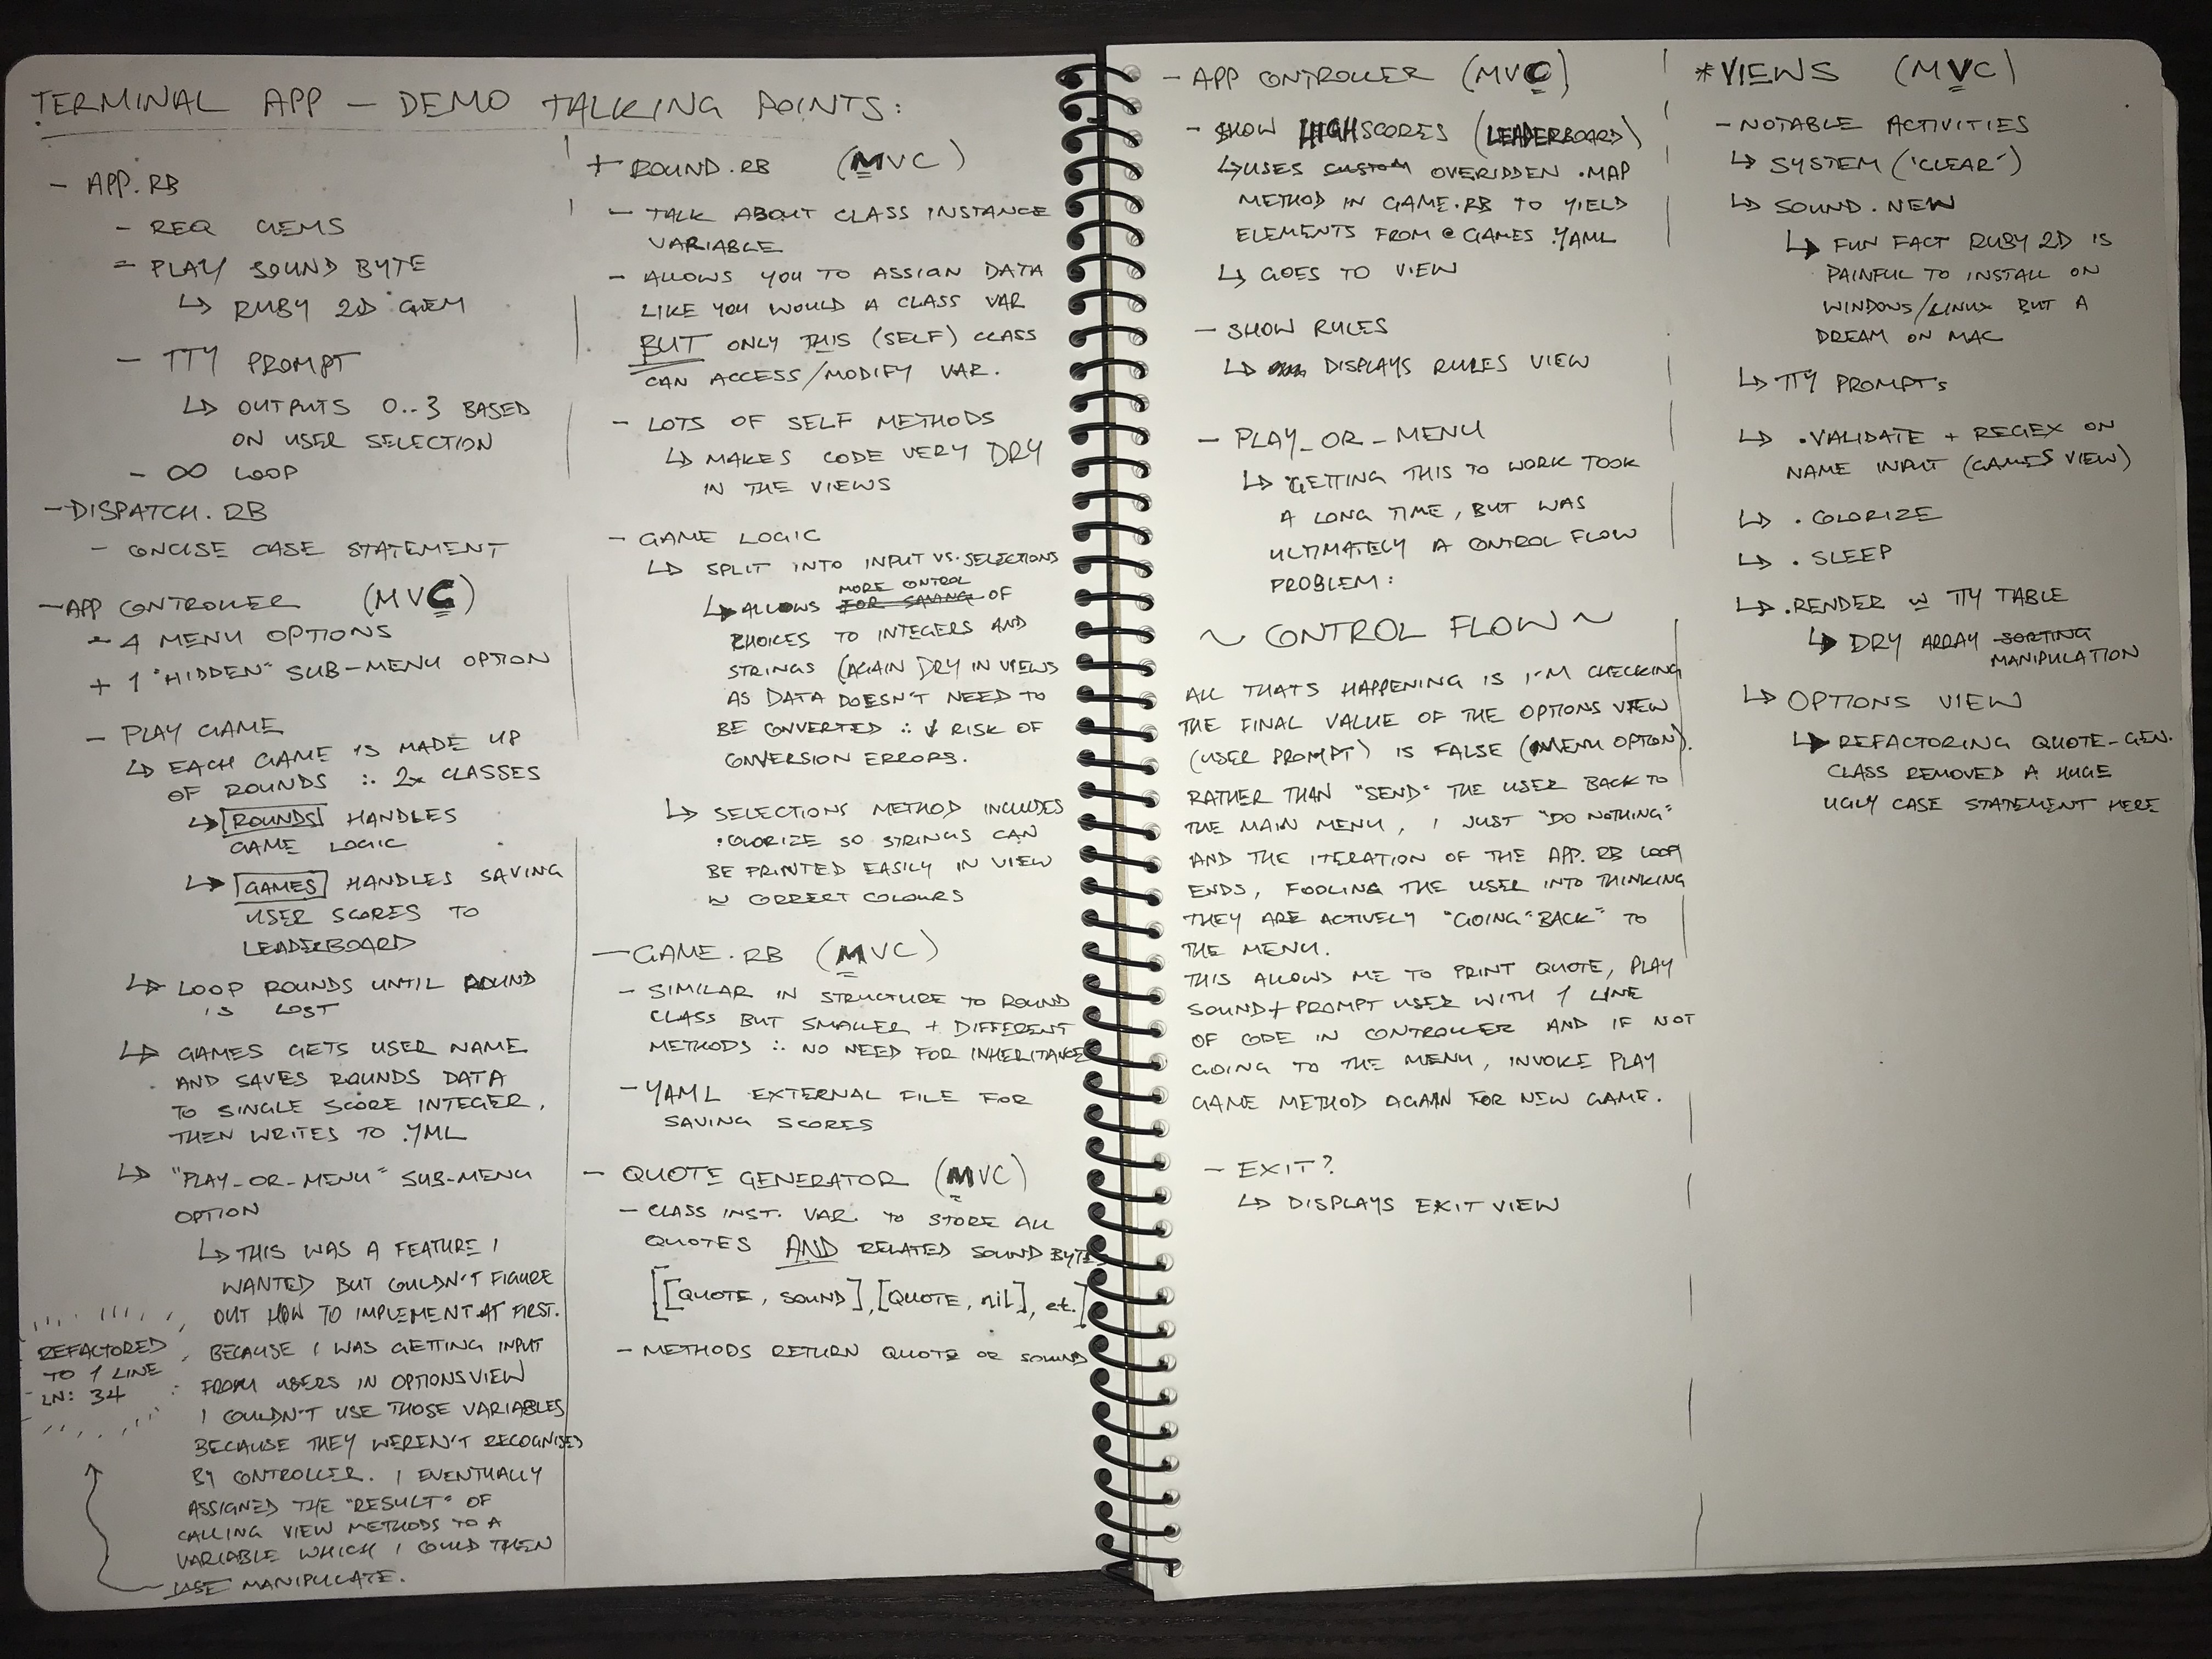 TERMINAL APP — DEMO TALKING POINTS:
- APP.RB
- REQ GEMS
- PLAY SOUND BYTE
↳ RUBY 2D GEM
- TTY PROMPT
↳ OUTPUTS 0..3 BASED
ON USER SELECTION
- ∞ LOOP
- DISPATCH.RB
- CONCISE CASE STATEMENT
- APP CONTROLLER (MVC)
- 4 MENU OPTIONS
+ 1 "HIDDEN" SUB-MENU OPTION
- PLAY GAME
↳ EACH GAME IS MADE UP
OF ROUNDS ∴ 2x CLASSES
↳ [ROUNDS] HANDLES
GAME LOGIC
↳ [GAMES] HANDLES SAVING
USER SCORES TO
LEADERBOARD
↳ LOOP ROUNDS UNTIL ROUND
IS LOST
↳ GAMES GETS USER NAME
AND SAVES ROUNDS DATA
TO SINGLE SCORE INTEGER,
THEN WRITES TO .YML
↳ "PLAY_OR_MENU" SUB-MENU
OPTION
↳ THIS WAS A FEATURE I
WANTED BUT COULDN'T FIGURE
OUT HOW TO IMPLEMENT AT FIRST.
BECAUSE I WAS GETTING INPUT
FROM USERS IN OPTIONSVIEW
I COULDN'T USE THOSE VARIABLES
BECAUSE THEY WEREN'T RECOGNISED
BY CONTROLLER. I EVENTUALLY
ASSIGNED THE "RESULT" OF
CALLING VIEW METHODS TO A
VARIABLE WHICH I COULD THEN
USE MANIPULATE.
REFACTORED
TO 1 LINE
LN: 34
+ ROUND.RB (MVC)
- TALK ABOUT CLASS INSTANCE
VARIABLE
- ALLOWS YOU TO ASSIGN DATA
LIKE YOU WOULD A CLASS VAR
BUT ONLY THIS (SELF) CLASS
CAN ACCESS/MODIFY VAR.
- LOTS OF SELF METHODS
↳ MAKES CODE VERY DRY
IN THE VIEWS
- GAME LOGIC
↳ SPLIT INTO INPUT VS. SELECTIONS
MORE CONTROL
↳ ALLOWS FOR SAVING OF
CHOICES TO INTEGERS AND
STRINGS (AGAIN DRY IN VIEWS
AS DATA DOESN'T NEED TO
BE CONVERTED ∴ ↓ RISK OF
CONVERSION ERRORS.
↳ SELECTIONS METHOD INCLUDES
.COLORIZE SO STRINGS CAN
BE PRINTED EASILY IN VIEW
W CORRECT COLOURS
- GAME.RB (MVC)
- SIMILAR IN STRUCTURE TO ROUND
CLASS BUT SMALLER + DIFFERENT
METHODS ∴ NO NEED FOR INHERITANCE
- YAML EXTERNAL FILE FOR
SAVING SCORES
- QUOTE GENERATOR (MVC)
- CLASS INST. VAR. TO STORE ALL
QUOTES AND RELATED SOUND BYTES
[[QUOTE, SOUND], [QUOTE, nil], et.]
- METHODS RETURN QUOTE OR SOUND
- APP CONTROLLER (MVC)
- SHOW HIGHSCORES (LEADERBOARD)
↳ USES CUSTOM OVERIDDEN .MAP
METHOD IN GAME.RB TO YIELD
ELEMENTS FROM @GAMES .YAML
↳ GOES TO VIEW
- SHOW RULES
↳ DISPLAYS RULES VIEW
- PLAY_OR_MENU
↳ GETTING THIS TO WORK TOOK
A LONG TIME, BUT WAS
ULTIMATELY A CONTROL FLOW
PROBLEM:
~ CONTROL FLOW ~
ALL THATS HAPPENING IS I'M CHECKING
THE FINAL VALUE OF THE OPTIONS VIEW
(USER PROMPT) IS FALSE (MENU OPTION).
RATHER THAN "SEND" THE USER BACK TO
THE MAIN MENU, I JUST "DO NOTHING"
AND THE ITERATION OF THE APP.RB LOOP
ENDS, FOOLING THE USER INTO THINKING
THEY ARE ACTIVELY "GOING "BACK" TO
THE MENU.
THIS ALLOWS ME TO PRINT QUOTE, PLAY
SOUND + PROMPT USER WITH 1 LINE
OF CODE IN CONTROLLER AND IF NOT
GOING TO THE MENU, INVOKE PLAY
GAME METHOD AGAIN FOR NEW GAME.
- EXIT?
↳ DISPLAYS EXIT VIEW
* VIEWS (MVC)
- NOTABLE ACTIVITIES
↳ SYSTEM ('CLEAR')
↳ SOUND.NEW
↳ FUN FACT RUBY 2D IS
PAINFUL TO INSTALL ON
WINDOWS/LINUX BUT A
DREAM ON MAC
↳ TTY PROMPTS
↳ .VALIDATE + REGEX ON
NAME INPUT (GAMES VIEW)
↳ .COLORIZE
↳ .SLEEP
↳ .RENDER W TTY TABLE
↳ DRY ARRAY SORTING
MANIPULATION
↳ OPTIONS VIEW
↳ REFACTORING QUOTE-GEN.
CLASS REMOVED A HUGE
UGLY CASE STATEMENT HERE